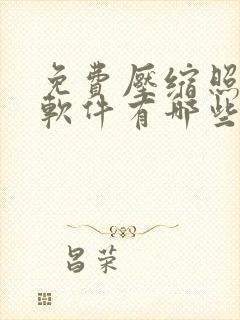 免費壓缩照
軟件有哪些
昌荣